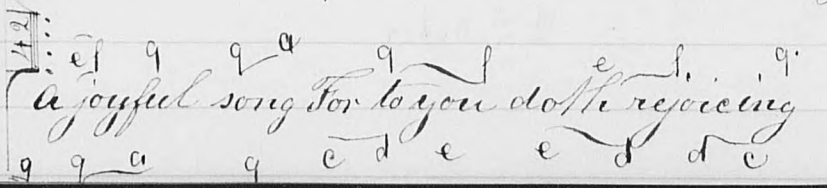 42
ef g g a g f e f g.
A joyful song For to you doth rejoicing
g g a g c d e e d d c